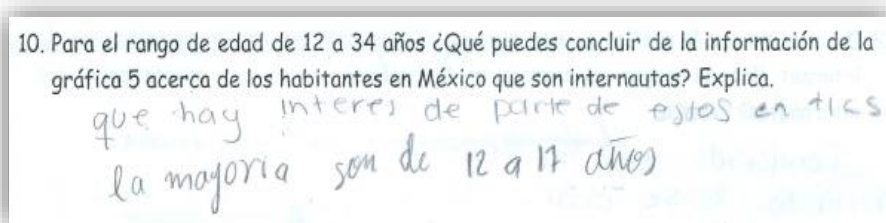 10. Para el rango de edad de 12 a 34 años ¿Qué puedes concluir de la información de la
gráfica 5 acerca de los habitantes en México que son internautas? Explica.
que hay interes de parte de estos en tics
la mayoria son de 12 a 17 años